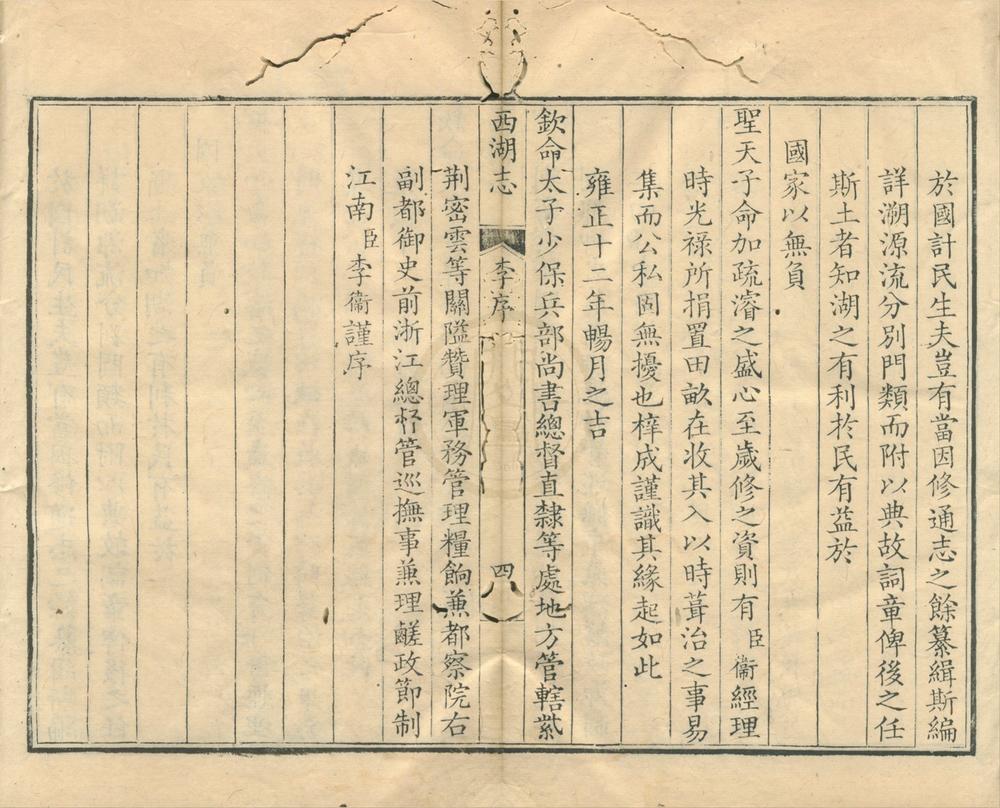 於國計民生夫豈有當因修通志之餘纂緝斯編
詳溯源流分別門類而附以典故詞章俾後之任
斯土者知湖之有利於民有益於
國家以無負
聖天子命加疏濬之盛心至歲修之資則有臣衞經理
時光祿所捐置田畝在收其入以時葺治之事易
集而公私固無擾也梓成謹識其緣起如此
雍正十二年暢月之吉
欽命太子少保兵部尚書總督直隸等處地方管轄紫
西湖志
李序
四八
荆密雲等關隘贊理軍務管理糧餉兼都察院右
副都御史前浙江總督管巡撫事兼理鹺政節制
江南臣李衞謹序